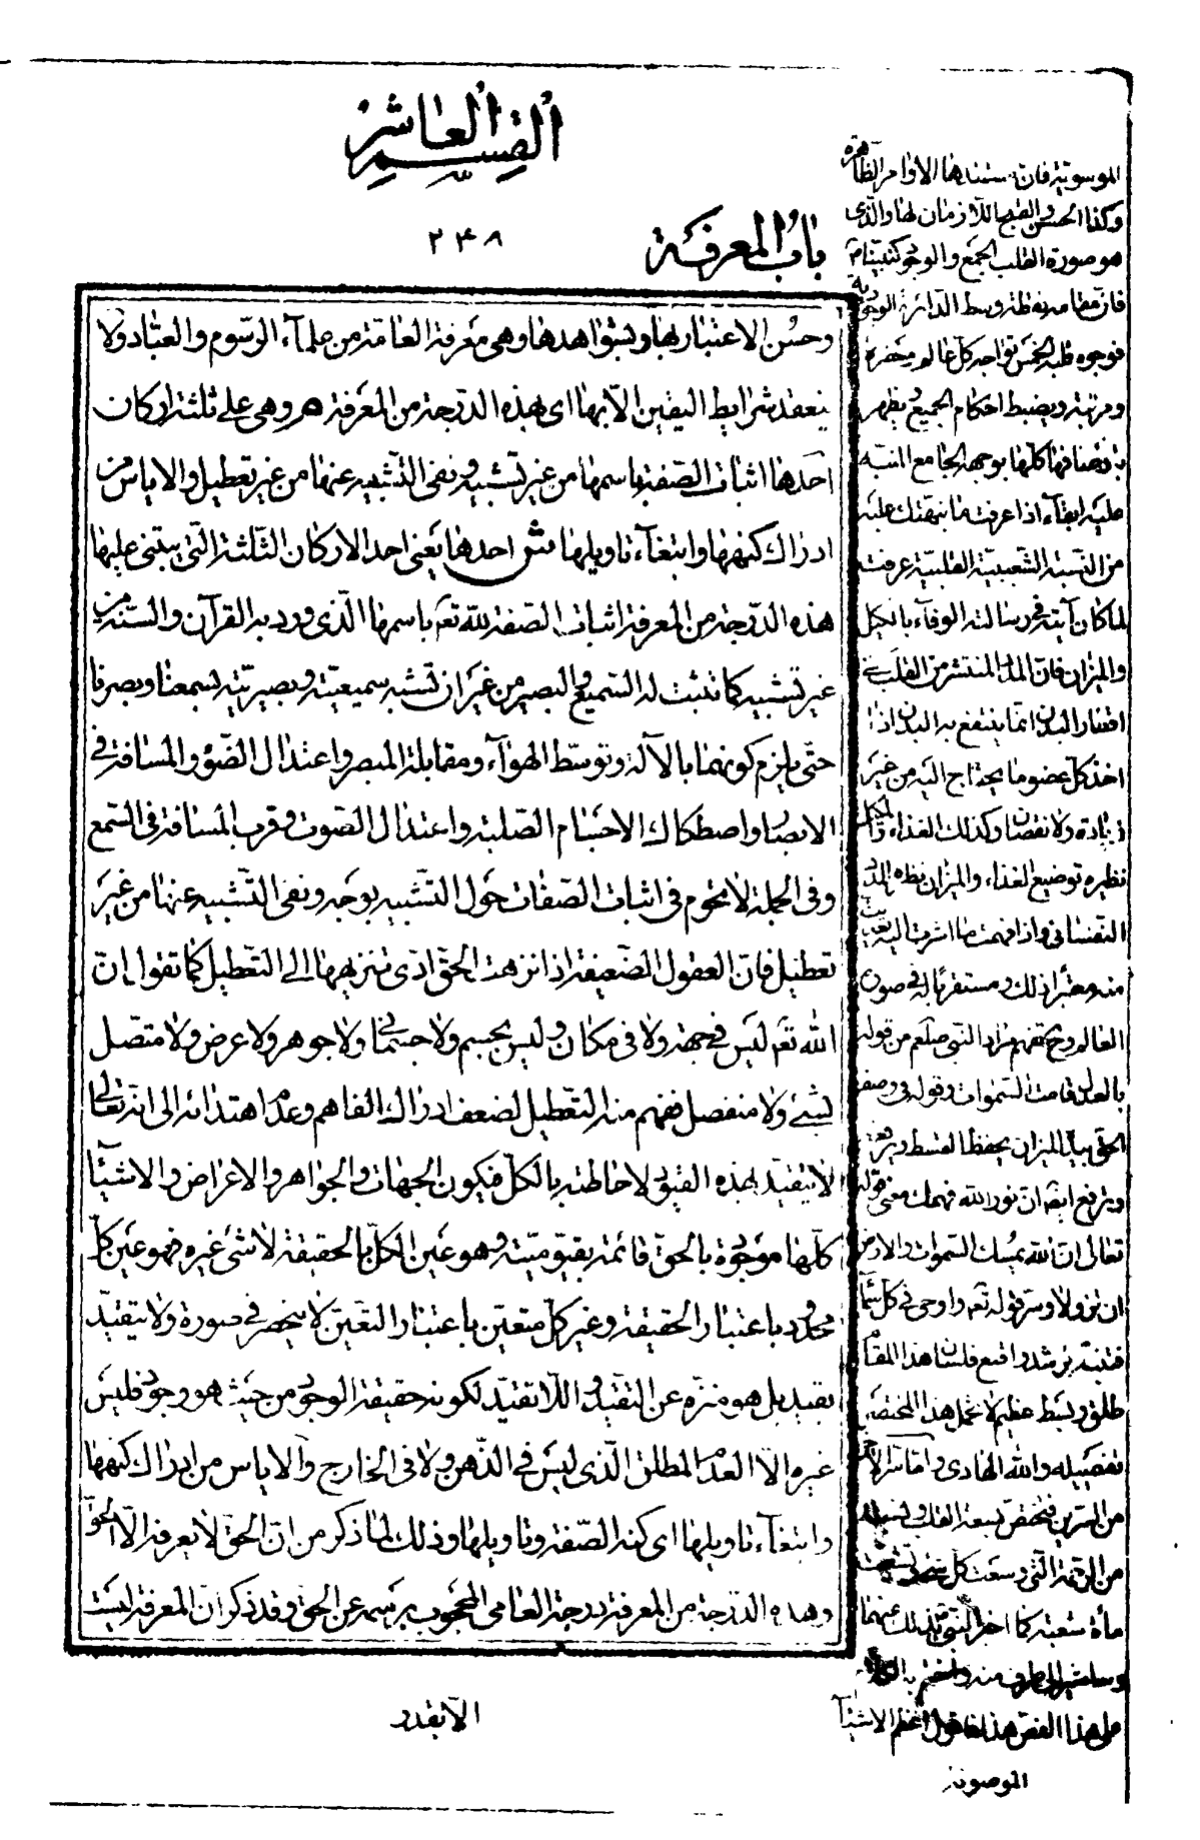 القسم العاشر
باب المعرفة
٢٤٨
وحسن الاعتبار بها وبشواهدها وهى معرفة العامة من علمآء الرسوم والعبّاد ولا
ينعقد شرايط اليقين الّا بها اى بهذه الدرجة من المعرفة هر وهى على ثلثة اركان
احدها اثبات الصّفة باسمها من غير تشبيه ونفى التّشبيه عنها من غير تعطيل والاياس من
ادراك كنهها وابتغآء تاويلها ش احدها يعنى احد الاركان الثّلثة الّتى يبتنى عليها
هذه الدرجة من المعرفة اثبات الصّفة للّه تعم باسمها الّذى ورد به القرآن والسنّة من
غير تشبيه كما تثبت له السّميع والبصير من غير ان تشبه سميعيّته وبصيريّته بسمعنا وبصرنا
حتّى يلزم كونهما بالآلة وتوسّط الهوآء ومقابلة المبصر واعتدال الضّوء والمسافة فى
الابصار واصطكاك الاجسام الصّلبة واعتدال الصّوت وقرب المسافة فى السّمع
وفى الجملة لا نحوم فى اثبات الصّفات حول التّشبيه بوجه ونفى التّشبيه عنها من غير
تعطيل فانّ العقول الضّعيفة اذا نزهت الحقّ ادّى تنزيهها الى التّعطيل كما تقول انّ
اللّه تعم ليس فى جهة ولا فى مكان وليس بجسم ولا جسمانىّ ولا جوهر ولا عرض ولا متّصل
بشئ ولا منفصل فيفهم منه التّعطيل لضعف ادراك الفاهم وعدم اهتدائه الى انّه تعالى
لا يتقيّد بهذه القيود لاحاطته بالكلّ فيكون الجهات والجواهر والاعراض والاشيآء
كلّها موجودة بالحقّ قائمة بقيّوميّته وهو عين الكلّ بالحقيقة لا شئ غيره فهو عين كلّ
محدود باعتبار الحقيقة وغير كلّ متعيّن باعتبار التّعيّن لا ينحصر فى صورة ولا يتقيّد
بقيد بل هو منزّه عن التقيّد واللّا تقيّد لكونه حقيقة الوجود من حيث هو وجود فليس
غيره الّا العدم المطلق الّذى ليس فى الذّهن ولا فى الخارج والاياس من ادراك كنهها
وابتغآء تاويلها اى كنه الصّفة وتاويلها وذلك لما ذكر من انّ الحقّ لا يعرفه الّا الحقّ
وهذه الدّرجة من المعرفة درجة العامى المحجوب برسمه عن الحقّ وقد ذكر انّ المعرفة ليست
الّا بقدر
وكذا الحسن والقبح اللازمان لها والّذى
هو صورة القلب الجمع والوجود
فانّ مقامه نقطة وسط الدائرة الوجوديّة
فوجوه قلبه الخمس تواجه كلّ عالم وحضرة
ومرتبة ويضبط احكام الجميع ويظهر
باوصافها كلّها بوجهه الجامع المنبّه
عليه ايضآء اذا عرفت ما نبهتك عليه
من النّسبة الشعيبيّة القلبيّة عرفت
لما كان آيته فى رسالته الوفآء بالكيل
والميزان فانّ المدد المنتشر من القلب فى
اقطار البدن انّما ينتفع به البدن اذا
اخذ كلّ عضو ما يحتاج اليه من غير
زيادة ولا نقصان وكذلك الغذاء
نظيره توضيع الغذاء والميزان نظير المدد
النّفسانى واذا فهمت ما اشرت اليه
العالم وح تفهم مراد النّبى صلعم من قوله
بالعدل قامت السّموات وقوله فى وصف
الحقّ بيده الميزان يخفظ القسط ويرفع
تعالى انّ اللّه يمسك السّموات والارض
ان تزولا وسرّ قوله تعم واوحى فى كلّ سمآء
فتنبّه ترشد واقنع فلسان هذا المقام
طلق وبسط عظيم لا يحتمل هذا المختصر
تفصيله واللّه الهادى وامّا سرّ الآخر
من الرّحمة الّتى وسعت كلّ شئ
مأة شعبة كما اخبر النّبى
الموصوفة